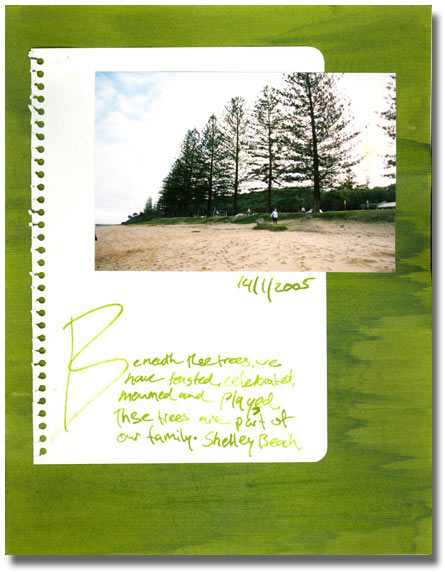 14/1/2005
Beneath these trees, we
have toasted, celebrated,
mourned and played
These trees are part of
our family. Shelley Beach